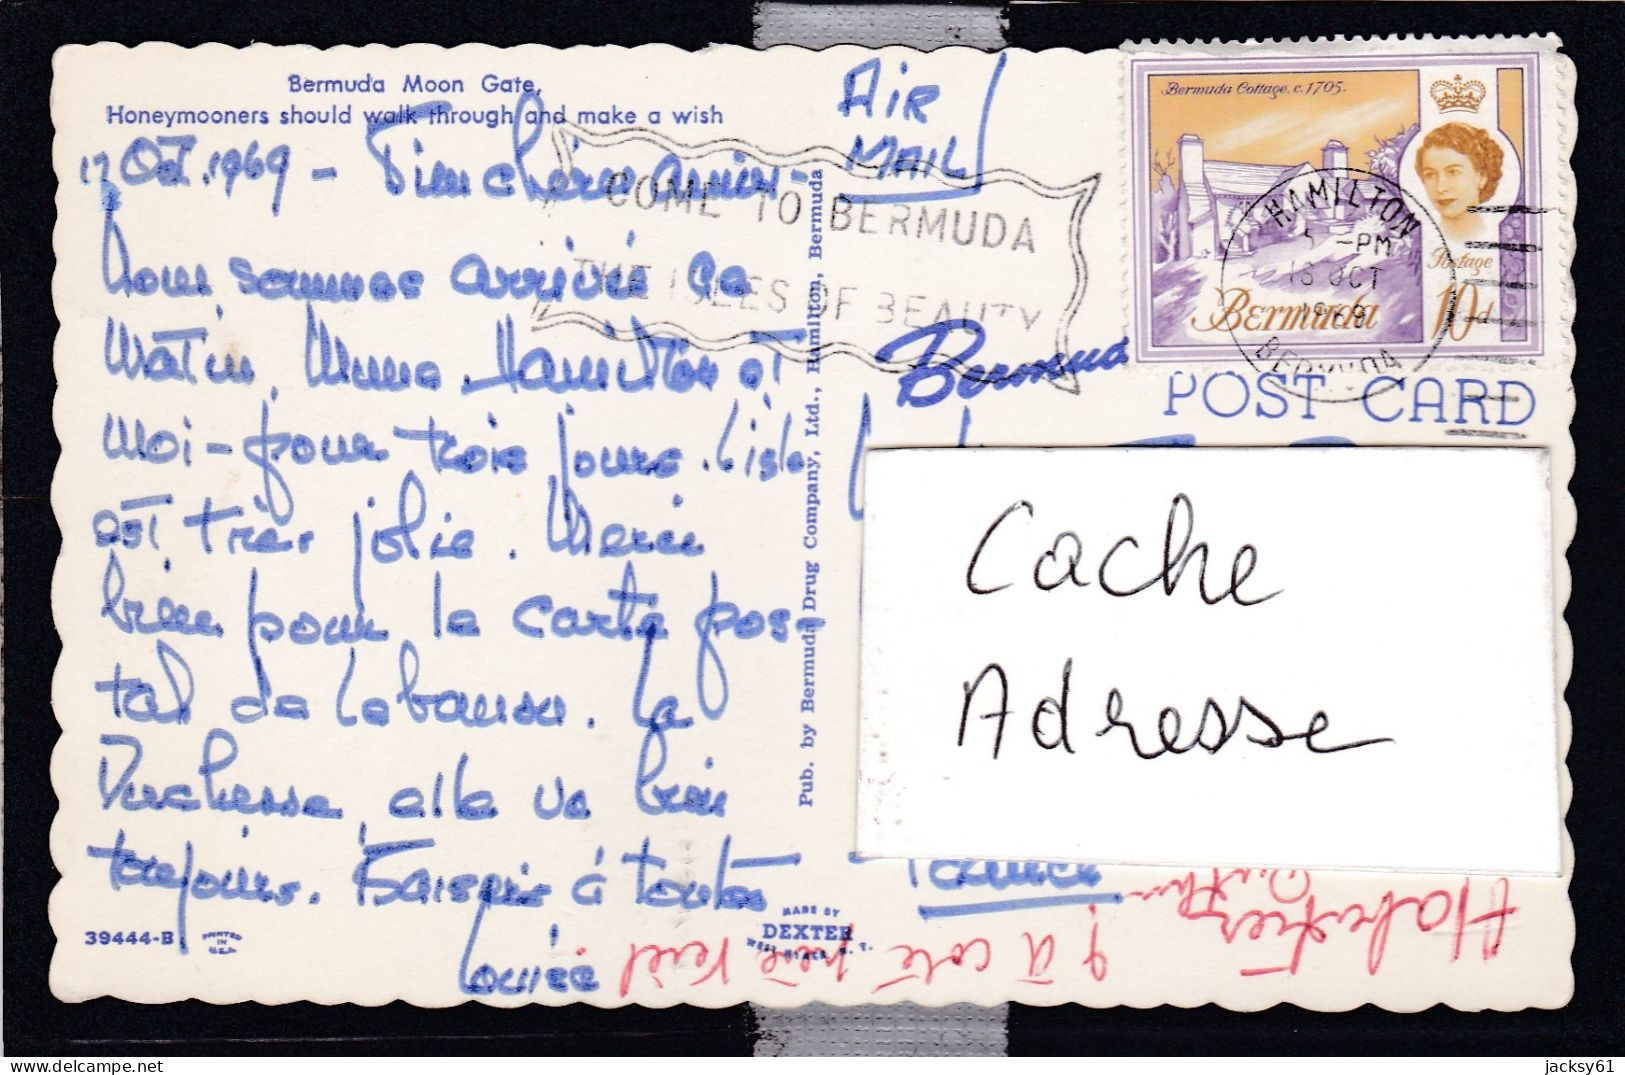 Bermuda Moon Gate,
Honeymooners should walk through and make a wish
AIR
MAIL
17 Oct. 1969 - chère
COME TO BERMUDA
THE ISLES OF BEAUTY
Bermuda Cottage, c.1705.
Postage
Bermuda 10d
HAMILTON
5 -PM
OCT
BERMUDA
sommes arrivée ce
Matin, Mme. Hamilton et
Bermuda
POST CARD
Moi - pour trois jours. L'isle
est très jolie. Merci
bien pour la carte pos-
tal de La
Duchesse, elle va bien
toujours. à toutes
Louise
Pub. by Bermuda Drug Company, Ltd., Hamilton, Bermuda
Cache
Adresse
39444-B
PRINTED
IN
U.S.A.
MADE BY
DEXTER
WEST NYACK, N. Y.
9 à coté
jacksy61